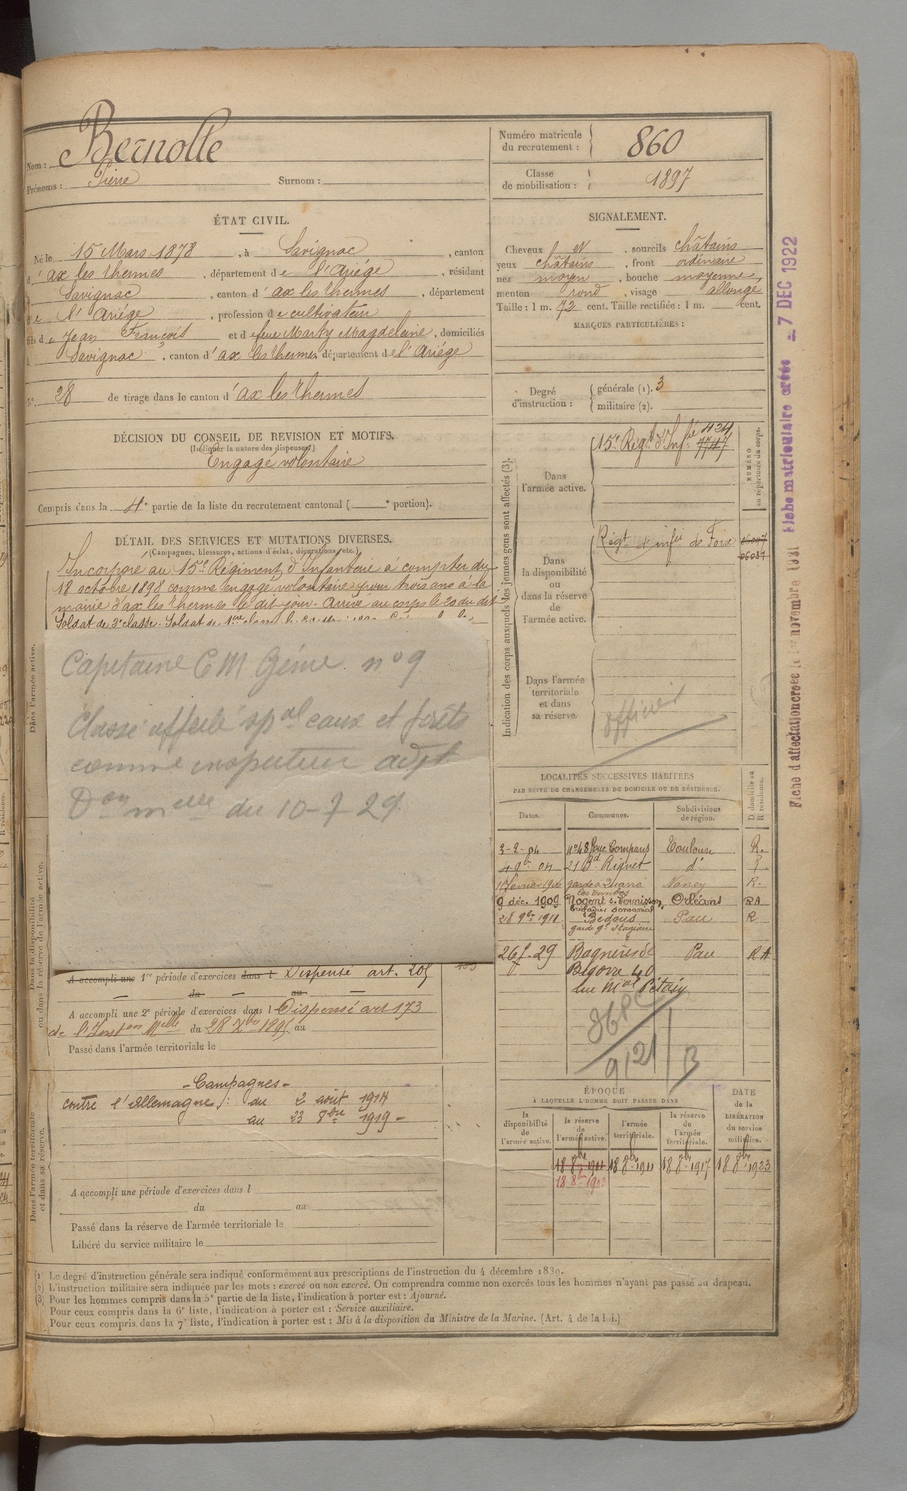 Nom : Bernolle
Prénoms : Pierre Surnom :
Numéro matricule du recrutement : 860
Classe de mobilisation : 1897
ÉTAT CIVIL.
Né le 15 Mars 1878, à Savignac, canton
d'ax les thermes, département de l'Ariége, résidant
à Savignac, canton d'ax les thermes, département
de l'Ariége, profession de cultivateur
fils de Jean François et de feue Marty Magdeleine, domiciliés
à Savignac, canton d'ax les thermes, département de l'Ariége
N° 28 de tirage dans le canton d'ax les thermes
SIGNALEMENT.
Cheveux et, sourcils châtains
yeux châtains, front ordinaire
nez moyen, bouche moyenne
menton rond, visage allongé
Taille : 1 m. 72 cent. Taille rectifiée : 1 m. cent.
MARQUES PARTICULIÈRES :
Degré d'instruction : générale (1). 3
militaire (2).
DÉCISION DU CONSEIL DE REVISION ET MOTIFS.
(Indiquer la nature des dispenses)
Engagé volontaire
Compris dans la 4e partie de la liste du recrutement cantonal ( e portion).
DÉTAIL DES SERVICES ET MUTATIONS DIVERSES.
(Campagnes, blessures, actions d'éclat, décorations, etc.)
Incorporé au 15e Régiment d'Infanterie à compter du
18 octobre 1898 comme engagé volontaire pour trois ans à la
mairie d'ax les thermes le dit jour. Arrivé au corps le 20 du dit
Soldat de 2e classe. Soldat de 1ère classe le
Capitaine E M Génie n° 9
Classé affecté spal eaux et forêts
comme inspecteur adjt
Don melle du 10-7 29
A accompli une 1re période d'exercices dans l Dispensé art. 205
du au
A accompli une 2e période d'exercices dans l Dispensé art 173
de l'Inston Melle du 28 Xbre 1895 au
Passé dans l'armée territoriale le
- Campagnes -
contre l'Allemagne : du 2 août 1914
au 23 8bre 1919 -
A accompli une période d'exercices dans l
du au
Passé dans la réserve de l'armée territoriale le
Libéré du service militaire le
Dans l'armée active.
Dans la disponibilité ou dans la réserve de l'armée active.
Dans l'armée territoriale et dans sa réserve.
Indication des corps auxquels les jeunes gens sont affectés (3).
NUMÉRO au répertoire du corps.
Dans l'armée active. 15e Régt d'Infie 434 7747
Dans la disponibilité ou dans la réserve de l'armée active. Régt d'infie de Foix
Dans l'armée territoriale et dans sa réserve. officier
LOCALITÉS SUCCESSIVES HABITÉES
PAR SUITE DE CHANGEMENTS DE DOMICILE OU DE RÉSIDENCE.
Dates. Communes. Subdivisions de région. D domicile ou R résidence.
3-2-04 n° 48 Rue Compans Toulouse R.
4 9bre 04 21 Bd Riquet d° R
Nancy R.
9 déc. 1909 Nogent s. Vernisson, Orléans RA
28 9bre 1911 Bedous Pau R
garde gl stagiaire
26-8-29 Bagnères de Pau RA
Bigorre 40
rue Mal Pétain
9121 B
ÉPOQUE
A LAQUELLE L'HOMME DOIT PASSER DANS
la disponibilité de l'armée active. la réserve de l'armée active. l'armée territoriale. la réserve de l'armée territoriale. DATE de la LIBÉRATION du service militaire.
18 8bre 1911 18 8bre 1917 18 8bre 1923
Fiche matriculaire créée - 7 DEC 1922
Fiche d'affectation créée le 1er novembre 1931
(1) Le degré d'instruction générale sera indiqué conformément aux prescriptions de l'instruction du 4 décembre 1889.
(2) L'instruction militaire sera indiquée par les mots : exercé ou non exercé. On comprendra comme non exercés tous les hommes n'ayant pas passé au drapeau.
(3) Pour les hommes compris dans la 5e partie de la liste, l'indication à porter est : Ajourné.
Pour ceux compris dans la 6e liste, l'indication à porter est : Service auxiliaire.
Pour ceux compris dans la 7e liste, l'indication à porter est : Mis à la disposition du Ministre de la Marine. (Art. 4 de la loi.)